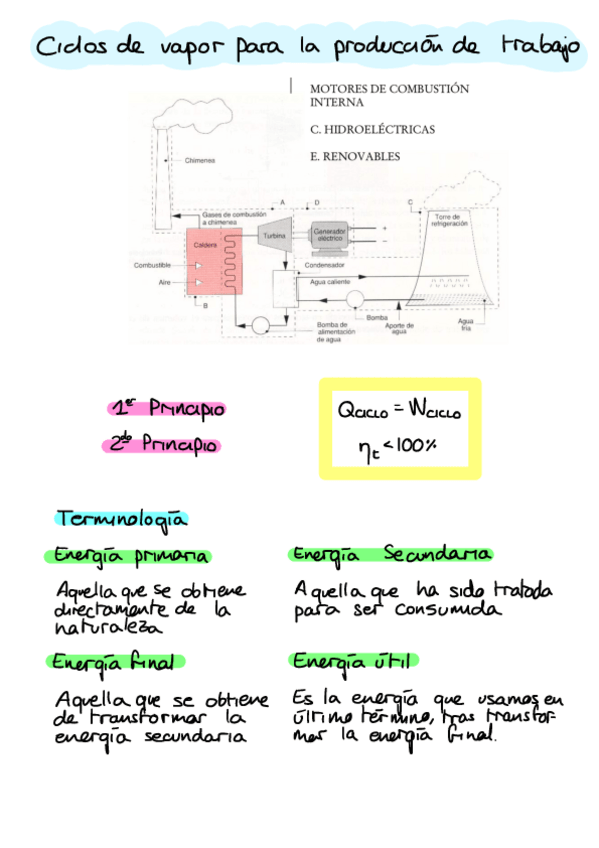 Ciclos de vapor para la producción de trabajo
MOTORES DE COMBUSTIÓN
INTERNA
C. HIDROELÉCTRICAS
E. RENOVABLES
Chimenea
A
D
C
Gases de combustión
a chimenea
Torre de
refrigeración
Turbina
Generador
eléctrico
+
−
Caldera
Combustible
Aire
Condensador
Agua caliente
B
Bomba de
alimentación
de agua
Bomba
Aporte de
agua
Agua
fría
1er Principio
2do Principio
QCICLO = WCICLO
ηt < 100%
Terminología
Energía primaria
Aquella que se obtiene
directamente de la
naturaleza
Energía Secundaria
Aquella que ha sido tratada
para ser consumida
Energía final
Aquella que se obtiene
de transformar la
energía secundaria
Energía útil
Es la energía que usamos en
último término, tras transfor-
mar la energía final.